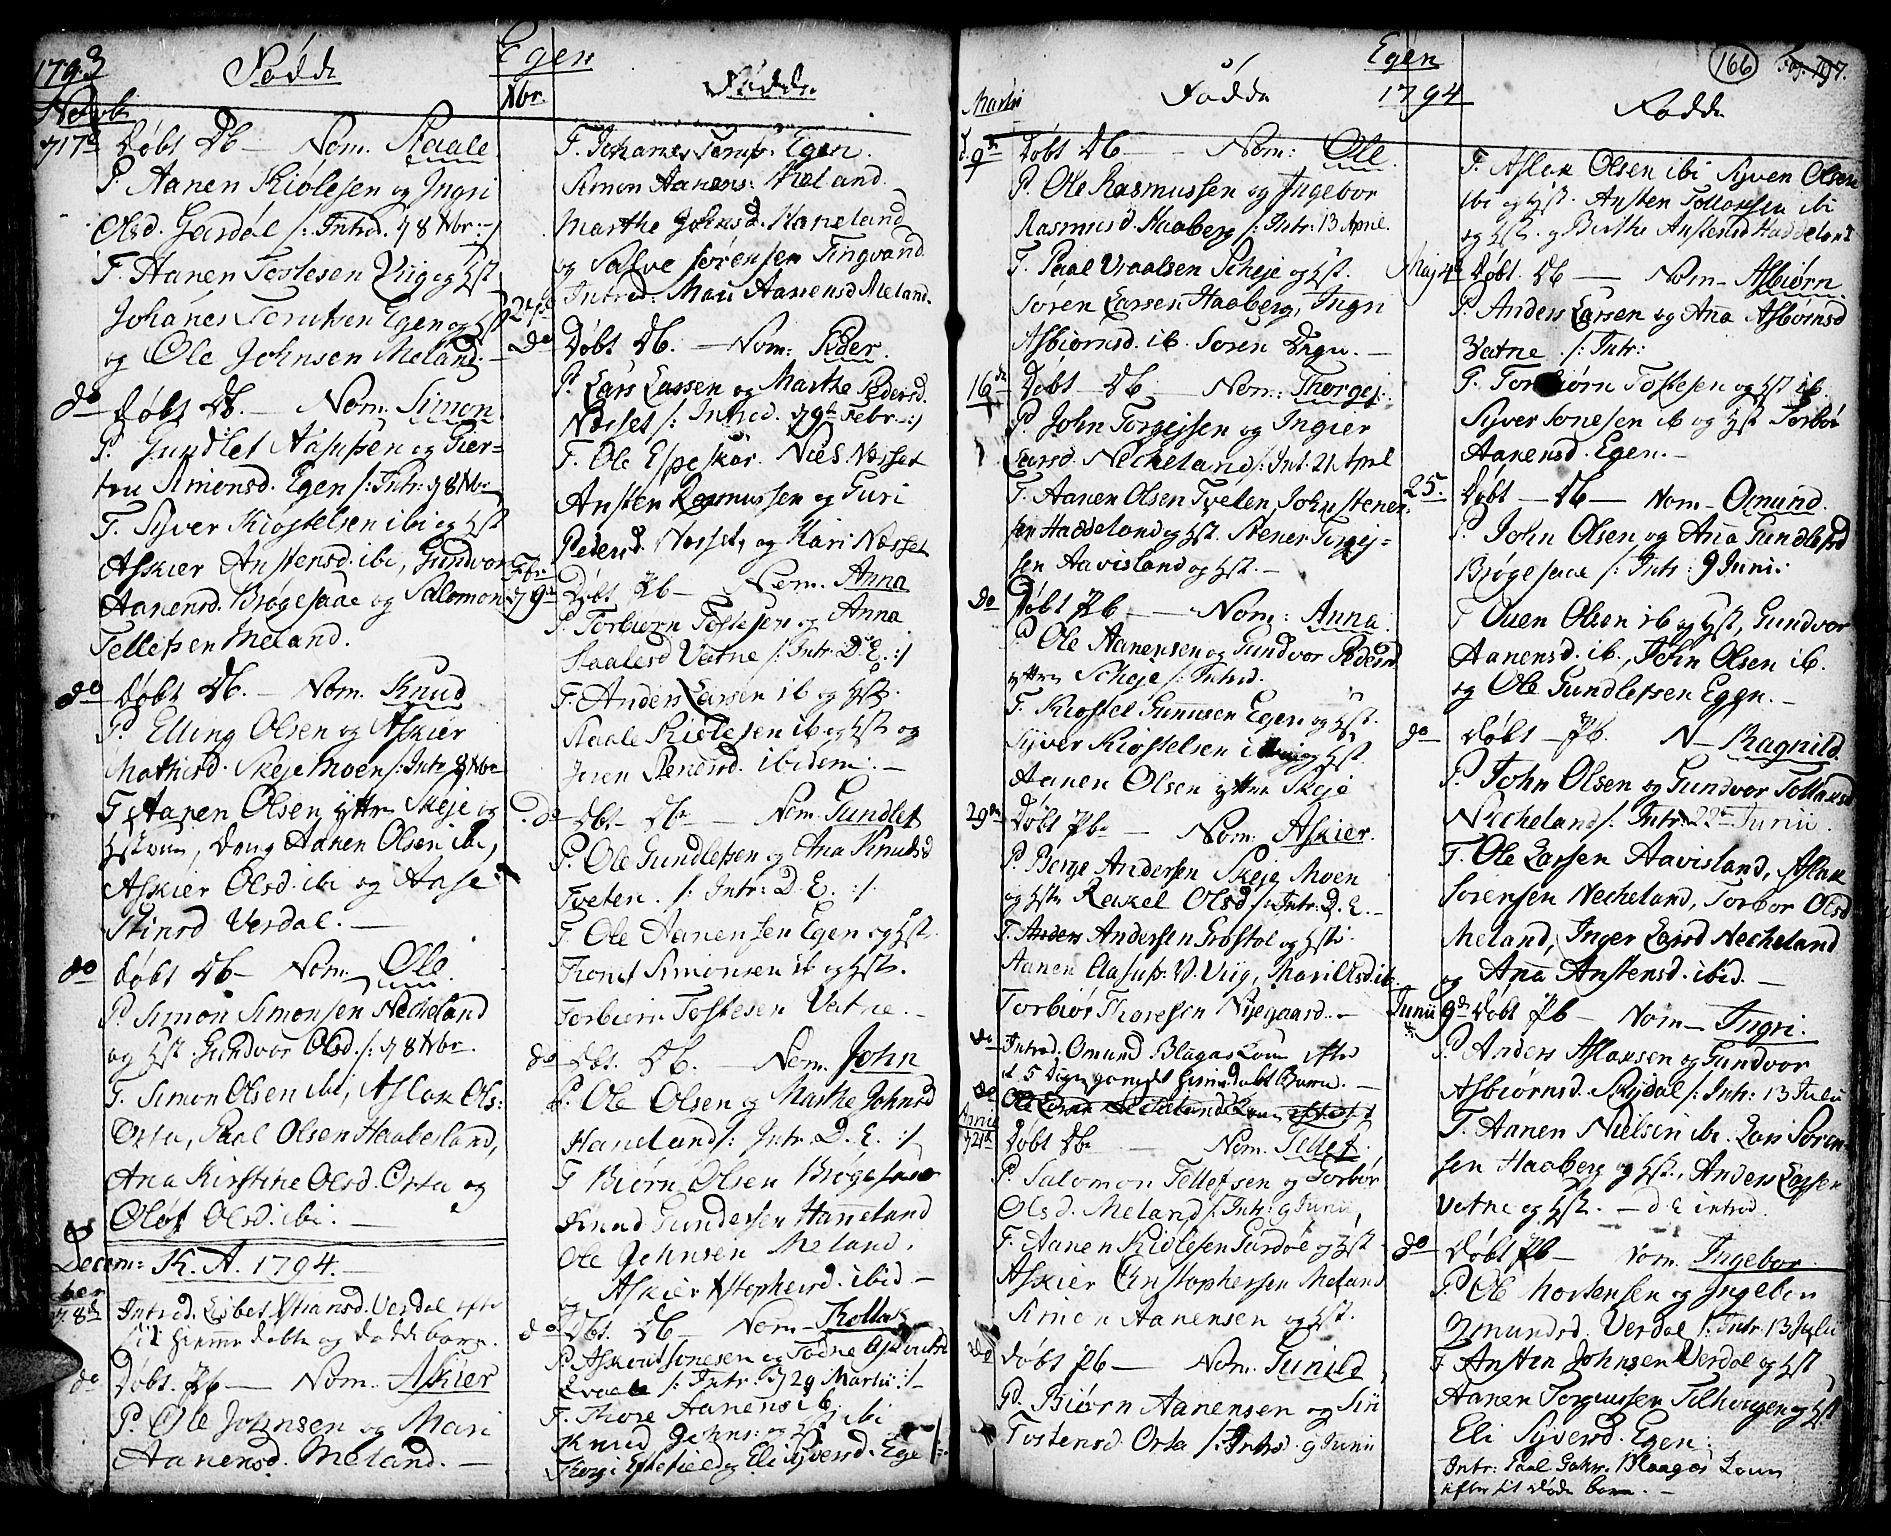 1793 Fødde
Egen
Novbr
d 17d Døbt Db — Nom. Staale
P. Aanen Kiølesen og Ingri
Olsd. Gardøl /: Introd. d 8 Xbr :/
F. Aanen Tostesen Viig og Hst
Johanes Egen og Hst
og Ole Johnsen Meland. —
do Døbt Db. — Nom. Simon.
P. Gundlef og Gier-
tru Simonsd. Egen /: Intr: d 8 Xbr
F. Syver Kiøstelsen ibi og Hst
Askier Anstensd. ibi, Gundvor
Aanensd. Brøgesaae og Salomon
Tellefsen Meland.
do Døbt Db. — Nom. Knud
P. Elling Olsen og Askier
Mathisd. Skeje Moen /: Intr. 8 Xbr
F. Aanen Olsen yttre Skeje og
Hstrue, Dreng Aanen Olsen ibi,
Askier Olsd. ibi og Anse
Stinsd Verdal. —
do Døbt Db — Nom. Ole.
P. Simon Simonsen Necheland
og Hst. Gundvor Olsd. /: d 8 Xbr.
F. Simon Olsen ibi, Aslak Ols:
Orta, Paal Olsen Haaberland,
Ana Kirstine Olsd. Orta og
Oløf Olsd. ibi. —
Decem- K. A. 1794. —
ber
d. 8d Introd. Lisbet Stiansd. Verdal efter
sit hiemme døbte og døde barn.
do Døbt. Pb — Nom. Askier
P. Ole Johnsen og Mari
Aanensd. Meland. —
Xbr. Fødde
F. Johannes Egen.
Simon Aanens: Meland.
Marthe Johnsd. Haneland
og Salve Sørensen Tingvand
Introd: Mari Aanensd Meland.
do Døbt Db. — Nom: Peder.
P. Lars Larsen og Marthe Pedersd.
Nærset /: Introd. d 9d Febr :/
F. Ole Espeskar. Nils Nærset
Ansten Rasmussen og Guri
Pedersd Nærset, og Kari Nærset
Fbr. d 9d Døbt Pb — Nom. Anna
P. Torbiørn Tostesen og Anna
Staalesd Vatne /: Intr: D. E. :/
F. Anders Larsen ib og Hst.
Staale Kiølesen ib og Hst og
Joren Stenersd. ibidem. —
Do Dbt. Db — Nom. Gundlef
P. Ole Gundlefsen og Ana Knudsd
Tveten. /: Intr: D. E. :/
F. Ole Aanensen Egen og Hst.
Trond Simonsen ib og Hst.
Torbiørn Tostesen Vatne. —
do Dbt. Db. — Nom. John
P. Ole Olsen og Marthe Johnsd
Haneland /: Intr. D. E. :/
F. Biørn Olsen Brøgesaae
Knud Gundersen Haneland
Ole Johnsen Meland.
og Askier Xstophersd. ibid —
do Dbt. Db — Nom — Thollak
P. Askout Jonesen og Todne Askoutsd
/: Intr. d 29 Martii :/
F. Thore Aanens ib
Knud Johns: og Hst ibi
Eli Syversd. Ege
Egen
1794
166
Martii Fødde
d. 9d Døbt Db — Nom: Ole
P. Ole Rasmussen og Ingebor
Rasmusd. Haaberg /: Intr: 13 April.
F. Paal Vraalsen Scheje og Hst.
Søren Larsen Haaberg, Ingri
Asbiørnsd. ib. Søren Degn. —
16de Døbt — Db — Nom: Thorgej.
P. John Torgejsen og Ingier
Larsd. Necheland /: Int: 21 April
F. Aanen Olsen Tveten, John Stener-
sen Haddeland og Hst. Stener Torgej-
sen Aavisland og Hst. —
do Døbt Pb — Nom: Anna.
P. Ole Aanensen og Gundvor Pedersd
yttre Scheje /: Introd.
F. Kiøstel Gunnusen Egen og Hst.
Syver Kiøstelsen ib og Hst.
Aanen Olsen yttre Skeje
29de Døbt Pb — Nom: Askier.
P. Berge Andersen Skeje Moen
og Hstr Rakel Olsd /: Intr. D. E. —
F. Andersen Frøstøl og Hst.
Aanen V. Viig, Mari Olsd. ib.
Torbiør Thoresen Nijegaard. —
do Introd: Omund Blagas Kone efter
et 5 Dage gamelt hiemedøbt Barn. —
do
Aprilis
d 21d Døbt Db — Nom. Tellef.
P. Salomon Tellefsen og Torbør
Olsd. Meland /: Intr: 9 Junii,
F. Aanen Kiølesen Gardøl og Hst
Askier Christophersen Meland
Simon Aanensen og Hst.
do Døbt Pb — Nom. Gunild.
P. Biørn Aanensen og Siri
Tostensd. Orta /: Introd. 9 Junii
Fødde
F. Aslak Olsen ibi Syven Olsen
ibi og Hst. Ansten Tollaksen ibi
og Hst. og Birthe Anstensd Haddeland
Maj 4d Døbt. Db — Nom — Asbiørn
P. Anders Larsen og Ana Asbiørnsd
Vatne. /: Intr:
F. Torbiørn Tostesen og Hst ib.
Syver Jonesen ib og Hst Torbør
Aanensd. Egen. —
25. Døbt — Db — Nom — Omund.
P. John Olsen og Ana Gundlefsd
Brøgesaae /: Intr: 9 Junii
F. Ouen Olsen ib og Hst, Gundvor
Aanensd. ib., John Olsen ib.
og Ole Gundlefsen Egen. —
do Døbt — Pb. N — Ragnild.
P. John Olsen og Gundvor Tollaksd
Necheland /: Intr: 22de Junii.
F. Ole Larsen Aavisland, Aslak
Sørensen Necheland, Torbor Olsd
Meland, Inger Larsd Necheland
og Ana Anstensd. ibid. —
Junii 9d Døbt Pb — Nom — Ingri.
P. Anders Aslaksen og Gundvor
Asbiørnsd. Skijdal /: Intr: 13 Julii
F. Aanen Nielsen ibi. Lars Søren-
sen Haaberg og Hst., Anders Larsen
Vatne og Hst. — d. E introd.
do Døbt Pb — Nom. Ingebor
P. Ole Mortensen og Ingebor
Omundsd. Verdal /: Intr. 13 Julii
F. Ansten Johnsen Verdal og Hst
Aanen Torgiussen og Hst
Eli Syversd. Egen:
Intr: Paal Blaagas Kone
efter sit døde barn. —